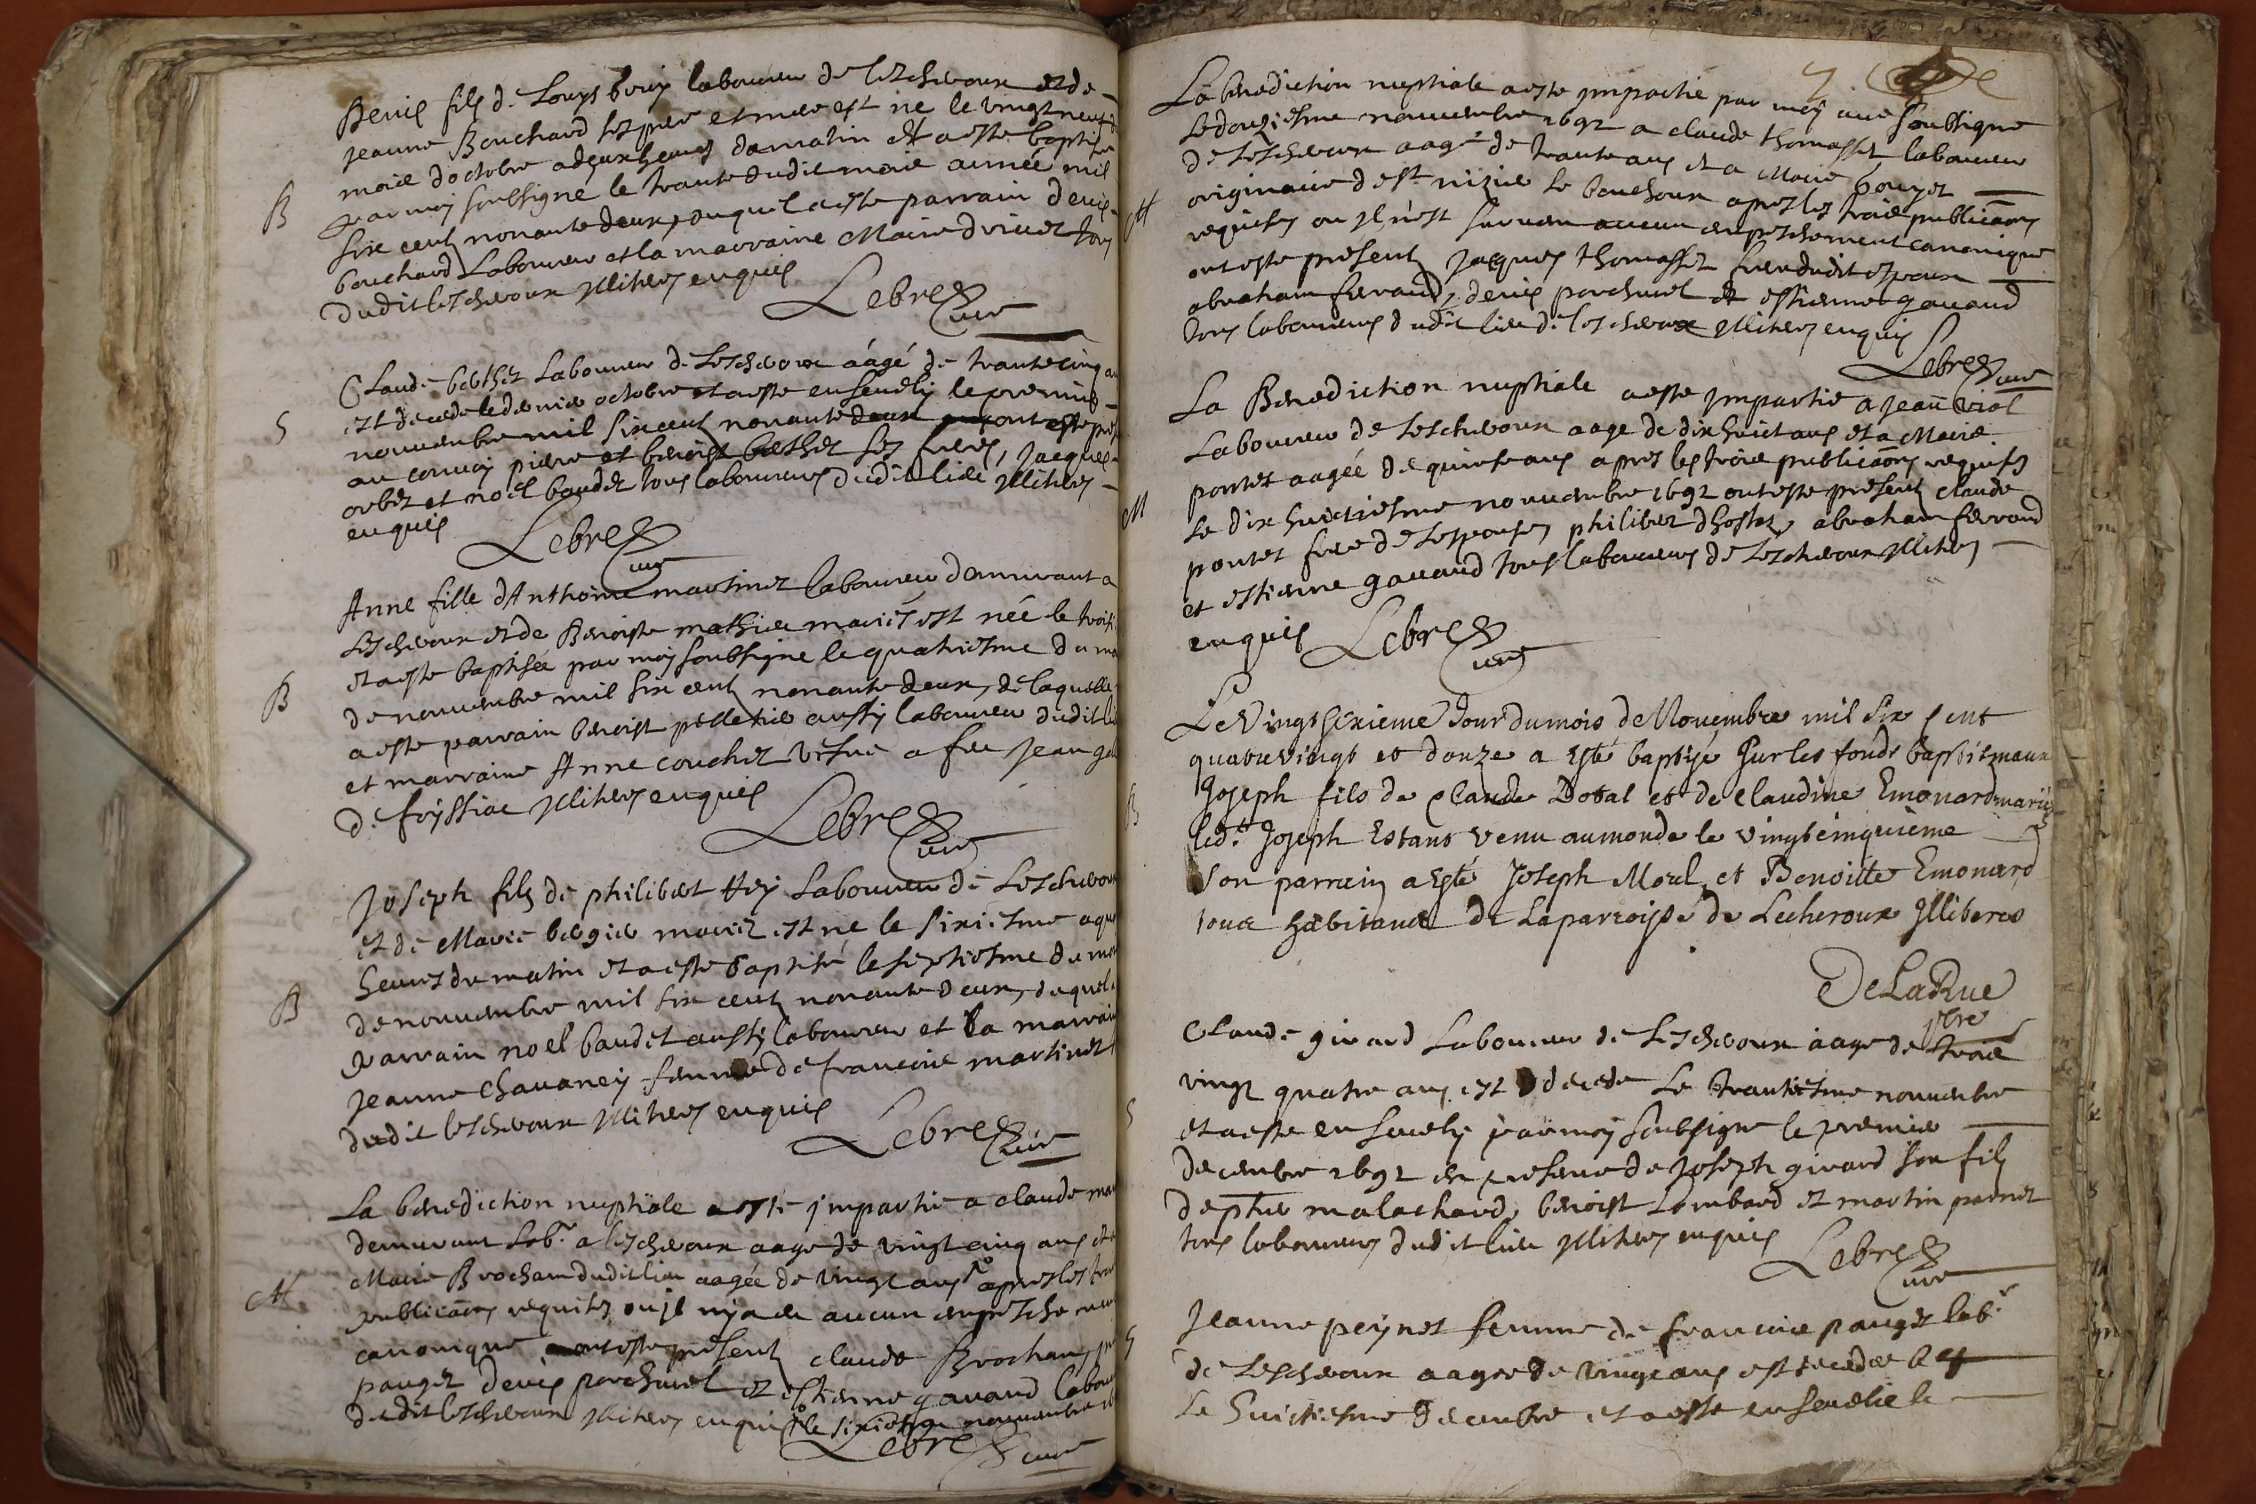 B
Denis fils de Louys bery laboureur de leschroux et de
jeanne Bouchard ses pere et mere est né le vingt neuf
mois d'octobre a deux heures du matin et a esté baptisé
par moy soubsigné le trante dudit mois année mil
six cent nonante deux, duquel a esté parrain denis
bouchard Laboureur et la marraine Marie tous
dudit leschroux illiteres enquis
Lebre
curé
S
Claude berthet Laboureur de Leschroux aagé de trante cinq an
est decedé le dernier octobre et a esté ensevely le premier
nouuembre mil six cent nonante deux ont esté
au convoy pierre et benoist berthet ses freres, jacques
orbet et noel baudet tous laboureurs dudit lieu illiteres
enquis
Lebre
curé
B
Anne fille d'Anthoine martinet laboureur demeurant a
Leschroux et de Benoiste mathieu mariés est née le trois
et a esté baptisée par moy soubsigné le quatriesme du mo
de nouuembre mil six cent nonante deux, de laquelle
a esté parrain benoist pelletier aussy laboureur dudit li
et marraine Anne couchet vefue a feu jean
de foyssiac illiteres enquis
Lebre
curé
B
Joseph fils de philibert Rey Laboureur de Leschrou
et de Marie bergier mariez est né le sixiesme a qua
heures du matin et a esté baptisé le septiesme du mo
de nouuembre mil six cent nonante deux, duquel
parrain noel baudet aussy laboureur et la marrai
jeanne Chavaney femme de francois martinet
dudit leschroux illiteres enquis
Lebre
curé
M
La benediction nuptiale a esté impartie a claude mar
demurant lab.r a leschroux aagé de vingt cinq ans et a
Marie Brochan dudit lieu aagée de vingt ans apres les trois
publicaõns requises ou il n'y a eu aucun enpeschemen
canonique ont esté present claude Brochan
pauget denis porcheret et estienne gavand labour
dudit leschroux illiteres enquis le sixiesme nouuembre
Lebre
curé
7
M
La benediction nuptiale a esté impartie par moy curé soubsigné
Le douziesme nouuembre 1692 a claude thomasset laboureur
de Leschroux aagé de trante ans et a Marie bouget
originaire de st nizier le bouchoux apres les trois publicaõns
requises ou il n'est survenu aucun enpeschement canonique
ont esté present jacques thomasset frere dudit espoux
abraham ferrand, denis porcheret et estienne gavand
tous laboureurs dudit lieu de leschroux illiteres enquis
Lebre
curé
M
La Benediction nuptiale a esté impartie a jean viot
Laboureur de Leschroux aagé de dix huict ans et a Marie
pontet aagée de quinse ans apres les trois publicaõns requises
Le dix huictiesme nouuembre 1692 ont esté present claude
pontet frere de l'espouse, philibert d'hostes, abraham ferrand
et estienne gavand tous laboureurs de Leschroux illiteres
enquis
Lebre
curé
B
Le Vingt sixieme Jour du mois de Nouembre mil six cent
quatre vingt et douze a Esté baptisé sur les fonds baptismaux
Joseph fils de Claude Dotal et de Claudine Emonard mariés
led.t Joseph Estant venu au monde le vingt cinquieme
Son parrain a Esté Joseph Morel et Benoitte Emonard
tous habitans de La parroisse de Lecheroux Illiteres
DeLaRue
pbre
S
Claude girard Laboureur de Leschroux aagé de trois
vingt quatre ans est decedé Le trantiesme nouuembre
et a esté ensevely par moy soubsigné le premier
decembre 1692 en presence de Joseph girard son fils
de malachard, benoist Lombard et martin pernet
tous laboureurs dudit lieu illiteres enquis
Lebre
curé
S
Jeanne peynet femme de francois pauget lab.r
de Leschroux aagée de vingt ans est decedée
Le huictiesme decembre et a esté ensevelie le